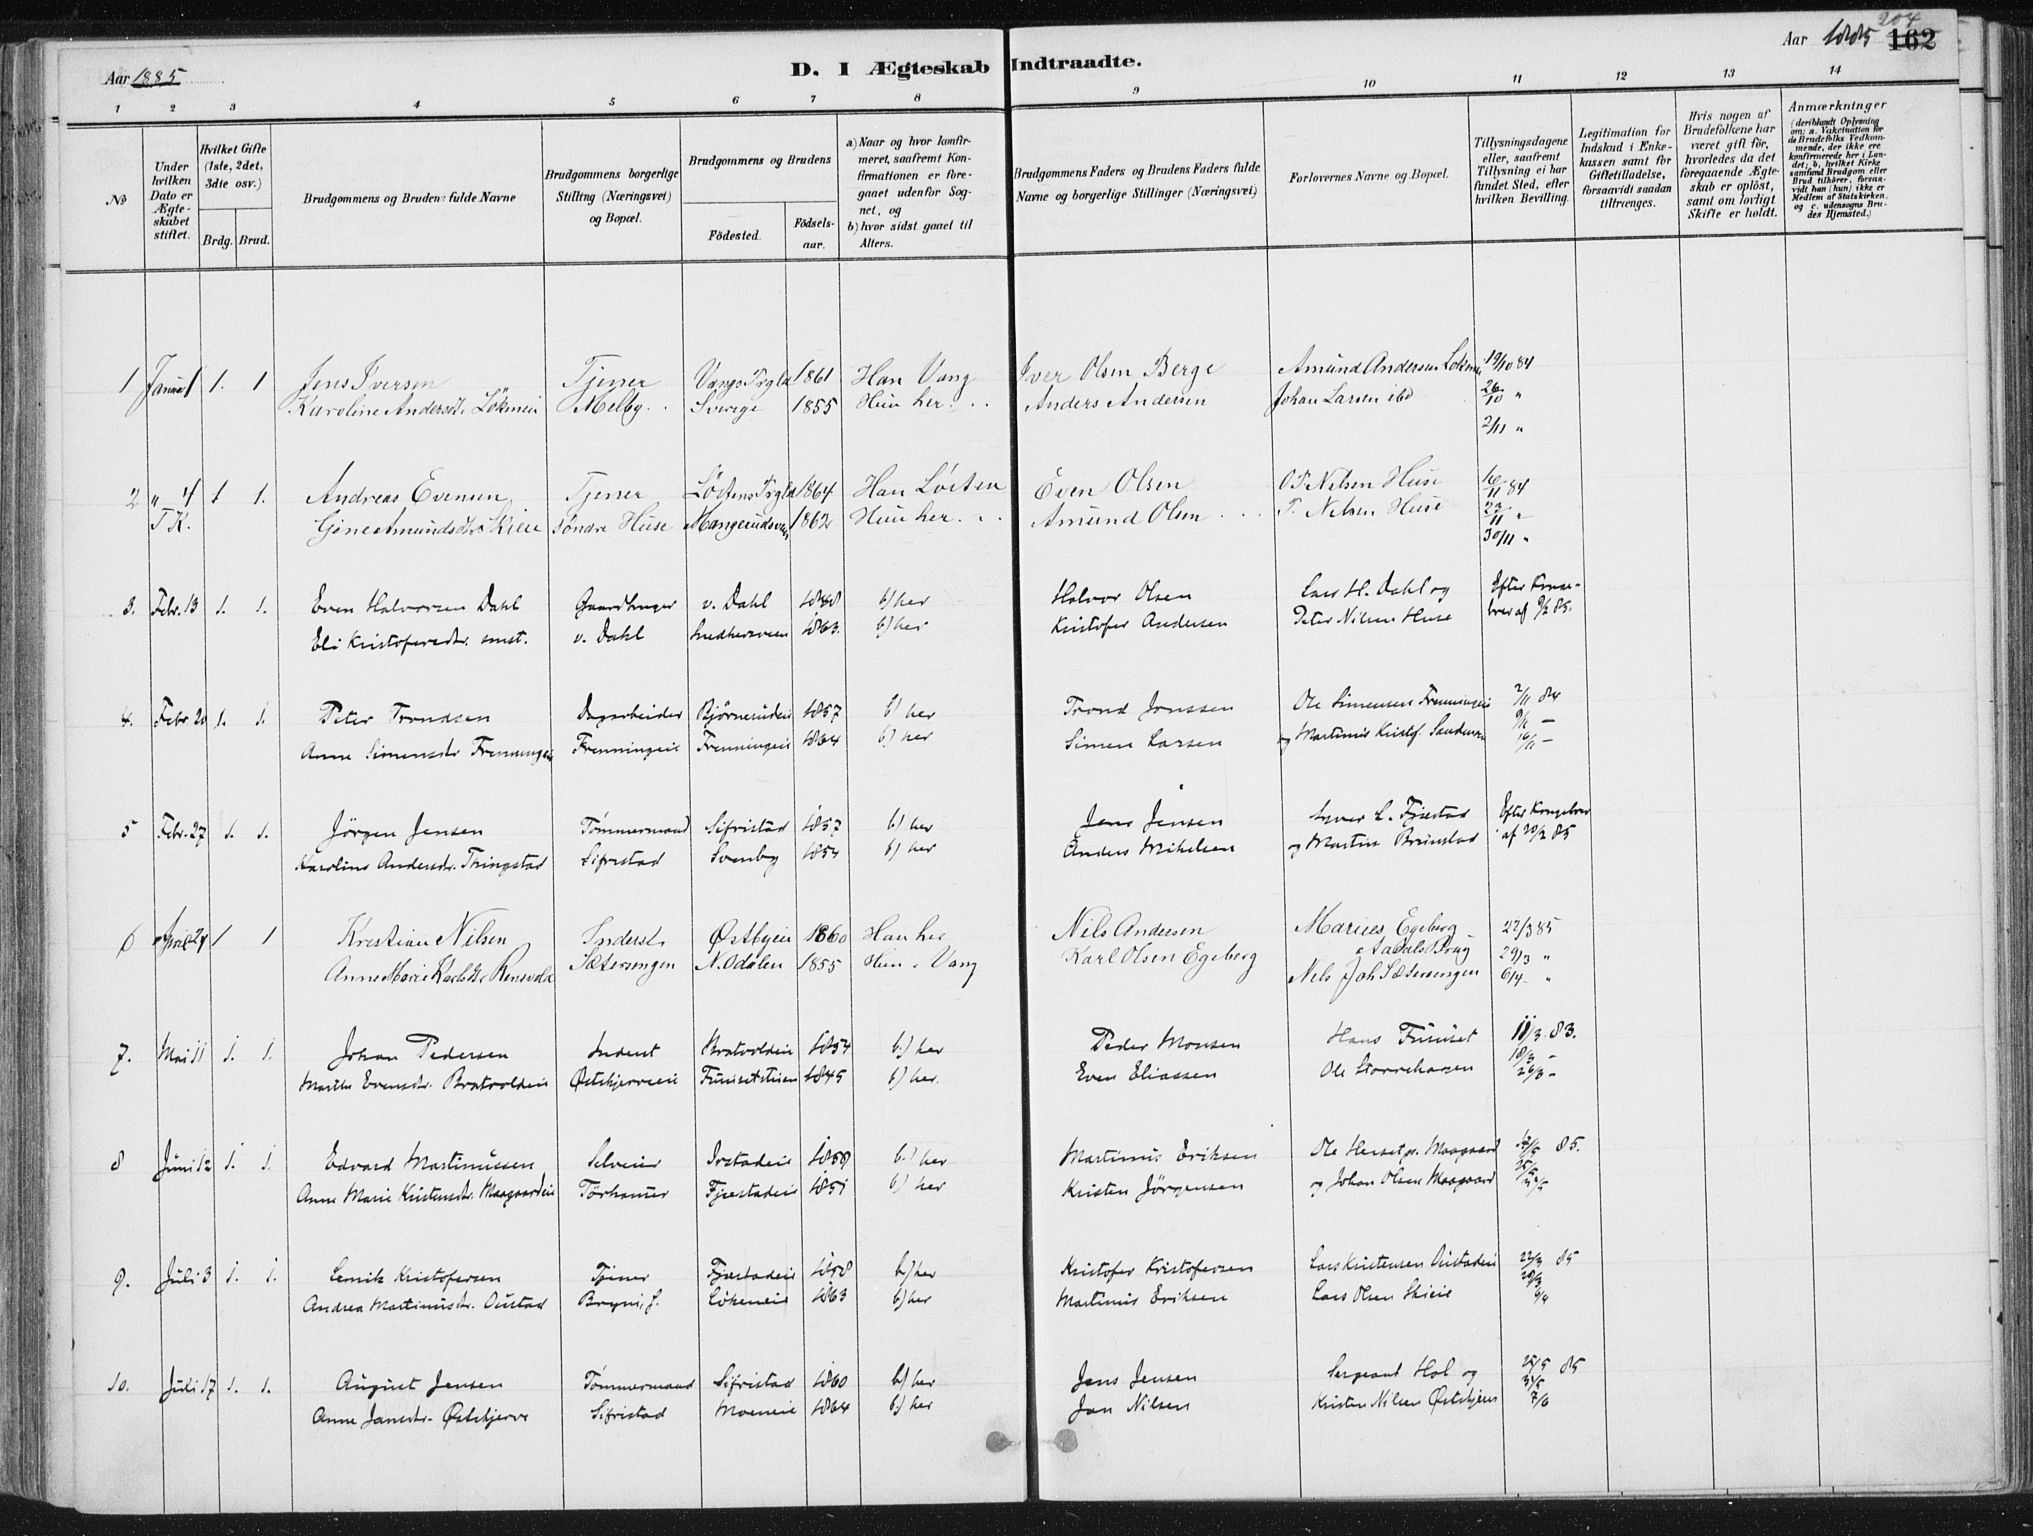 Aar 1885
D. I Ægteskab Indtraadte.
Aar 1885 204 162
1 2 3 4 5 6 7 8 9 10 11 12 13 14
No
Under hvilken Dato er Ægteskabet stiftet.
Hvilket Gifte (1ste, 2det, 3die osv.)
Brdg. Brud.
Brudgommens og Brudens fulde Navne
Brudgommens borgerlige Stilling (Næringsvei) og Bopæl.
Brudgommens og Brudens
Födested.
Födselsaar.
a) Naar og hvor konfirmeret, saafremt Konfirmationen er foregaaet udenfor Sognet, og
b) hvor sidst gaaet til Alters.
Brudgommens Faders og Brudens Faders fulde Navne og borgerlige Stillinger (Næringsvei)
Forlovernes Navne og Bopæl.
Tillysningsdagene eller, saafremt Tillysning ei har fundet Sted, efter hvilken Bevilling.
Legitimation for Indskud i Enkekassen samt för Giftetilladelse, forsaavidt saadan tiltrænges.
Hvis nogen af Brudefolkene har været gift för, hvorledes da det foregaaende Ægteskab er oplöst, samt om lovligt Skifte er holdt.
Anmærkninger
(deriblandt Oplysning om: a. Vakcination for de Brudefolks Vedkommende, der ikke ere konfirmerede her i Landet; b. hvilket Kirkesamfund Brudgom eller Brud tilhörer, forsaavidt han (hun) ikke er Medlem af Statskirken, og c. udensogns Brudes Hjemsted.)
1 Januar 1 1. 1 Jens Iversen Tjener Vangs Prgld 1861 Han Vang Iver Olsen Berge Amund Andersen Lökenei 19/10 84
Karoline Andersdt. Lökenei Melby Sverige 1855 Hun her. Anders Andersen Johan Larsen ibd 26/10 "
2/11 "
2 " 4 1 1. Andreas Evensen Tjener Löitens Prgld 1864 Han Löiten Even Olsen O P Nilsen Huse 16/11 84
T. K. Gine Amundsdtr Skieie Söndre Huse Mangerudsvea 1862 Hun her. Amund Olsen P. Nilsen Huse 23/11 "
30/11 "
3. Febr. 13 1. 1. Even Halvorsen Dahl Gaardbruger v. Dahl 1848 b) her Halvor Olsen Lars H. Dahl og Efter Konge-
Eli Kristofersdtr. smst. v. Dahl 1863. b) her Kristofer Andersen Peter Nilsen Huse brev af 9/2 85.
4. Febr 20 1. 1. Peter Trondsen Dagarbeider Björnerudei 1857 b) her Trond Jonssen Ole Simensen Frenningeie 2/11 84
Anne Simensdtr Frenningeie Frenningeie Frenningeie 1864 b) her Simen Larsen og Martinus Kristof. Sandersen 9/11 —
16/11 —
5 Febr. 27 1. 1. Jörgen Jensen Tömmermand Sifristad 1857 b) her Jens Jensen Syver L. Fjæstad Efter Kongebrev
Karoline Andersdtr. Thingstad Sifristad Svenby 1854 b) her Anders Mikelsen og Martin Brunstad af 20/2 85
6 April 24 1 1 Kristian Nilsen Inderst Østbyeie 1860 Han her Nils Andersen Marius Egeberg 22/3 85
Anne Marie Karlsdtr Rensvold Sæterengen N. Odalen 1855 Hun " Vang Karl Olsen Egeberg Aadals Brug 29/3 "
Nils Joh Sæterengen 6/4 "
7. Mai 11 1. 1. Johan Pedersen Inderst Bratvoldeie 1854 b.) her Peder Monsen Hans Furuset 11/3 83.
Marthe Evensdtr. Bratvoldeie Østskjerveie 1845 b) her. Even Eliassen Ole Storrehagen 18/3 —
26/3 —
8 Juni 12 1. 1. Edvard Martinussen Selveier 1859 b.) her Martinus Eriksen Ole Herset pr. Maagaard 85.
Anne Marie Kristensdtr. Maagaardeie Törhaner Fjæstadeie 1851 b) her Kristen Jörgensen og Johan Olsen Maagaard
9. Juli 3 1. 1. Kristofersen Tjener Fjæstadeie 1858 b.) her Kristofer Kristofersen Lars Kristensen Oustadeie 22/3 85
Andrea Martinusdtr. Oustad Bryni, f. Lökeneie 1863 b) her Martinus Eriksen Lars Olsen Skieie
10. Juli 17 1. 1. August Jensen Tömmermand Sifristad 1860 b) her Jens Jensen Sergeant Hol og 25/5 85
Anne Jansdtr. Østskjerve Sifristad Moeneie 1864 b.) her Jan Nilsen Kristen Nilsen Østskjerve 31/5
7/6